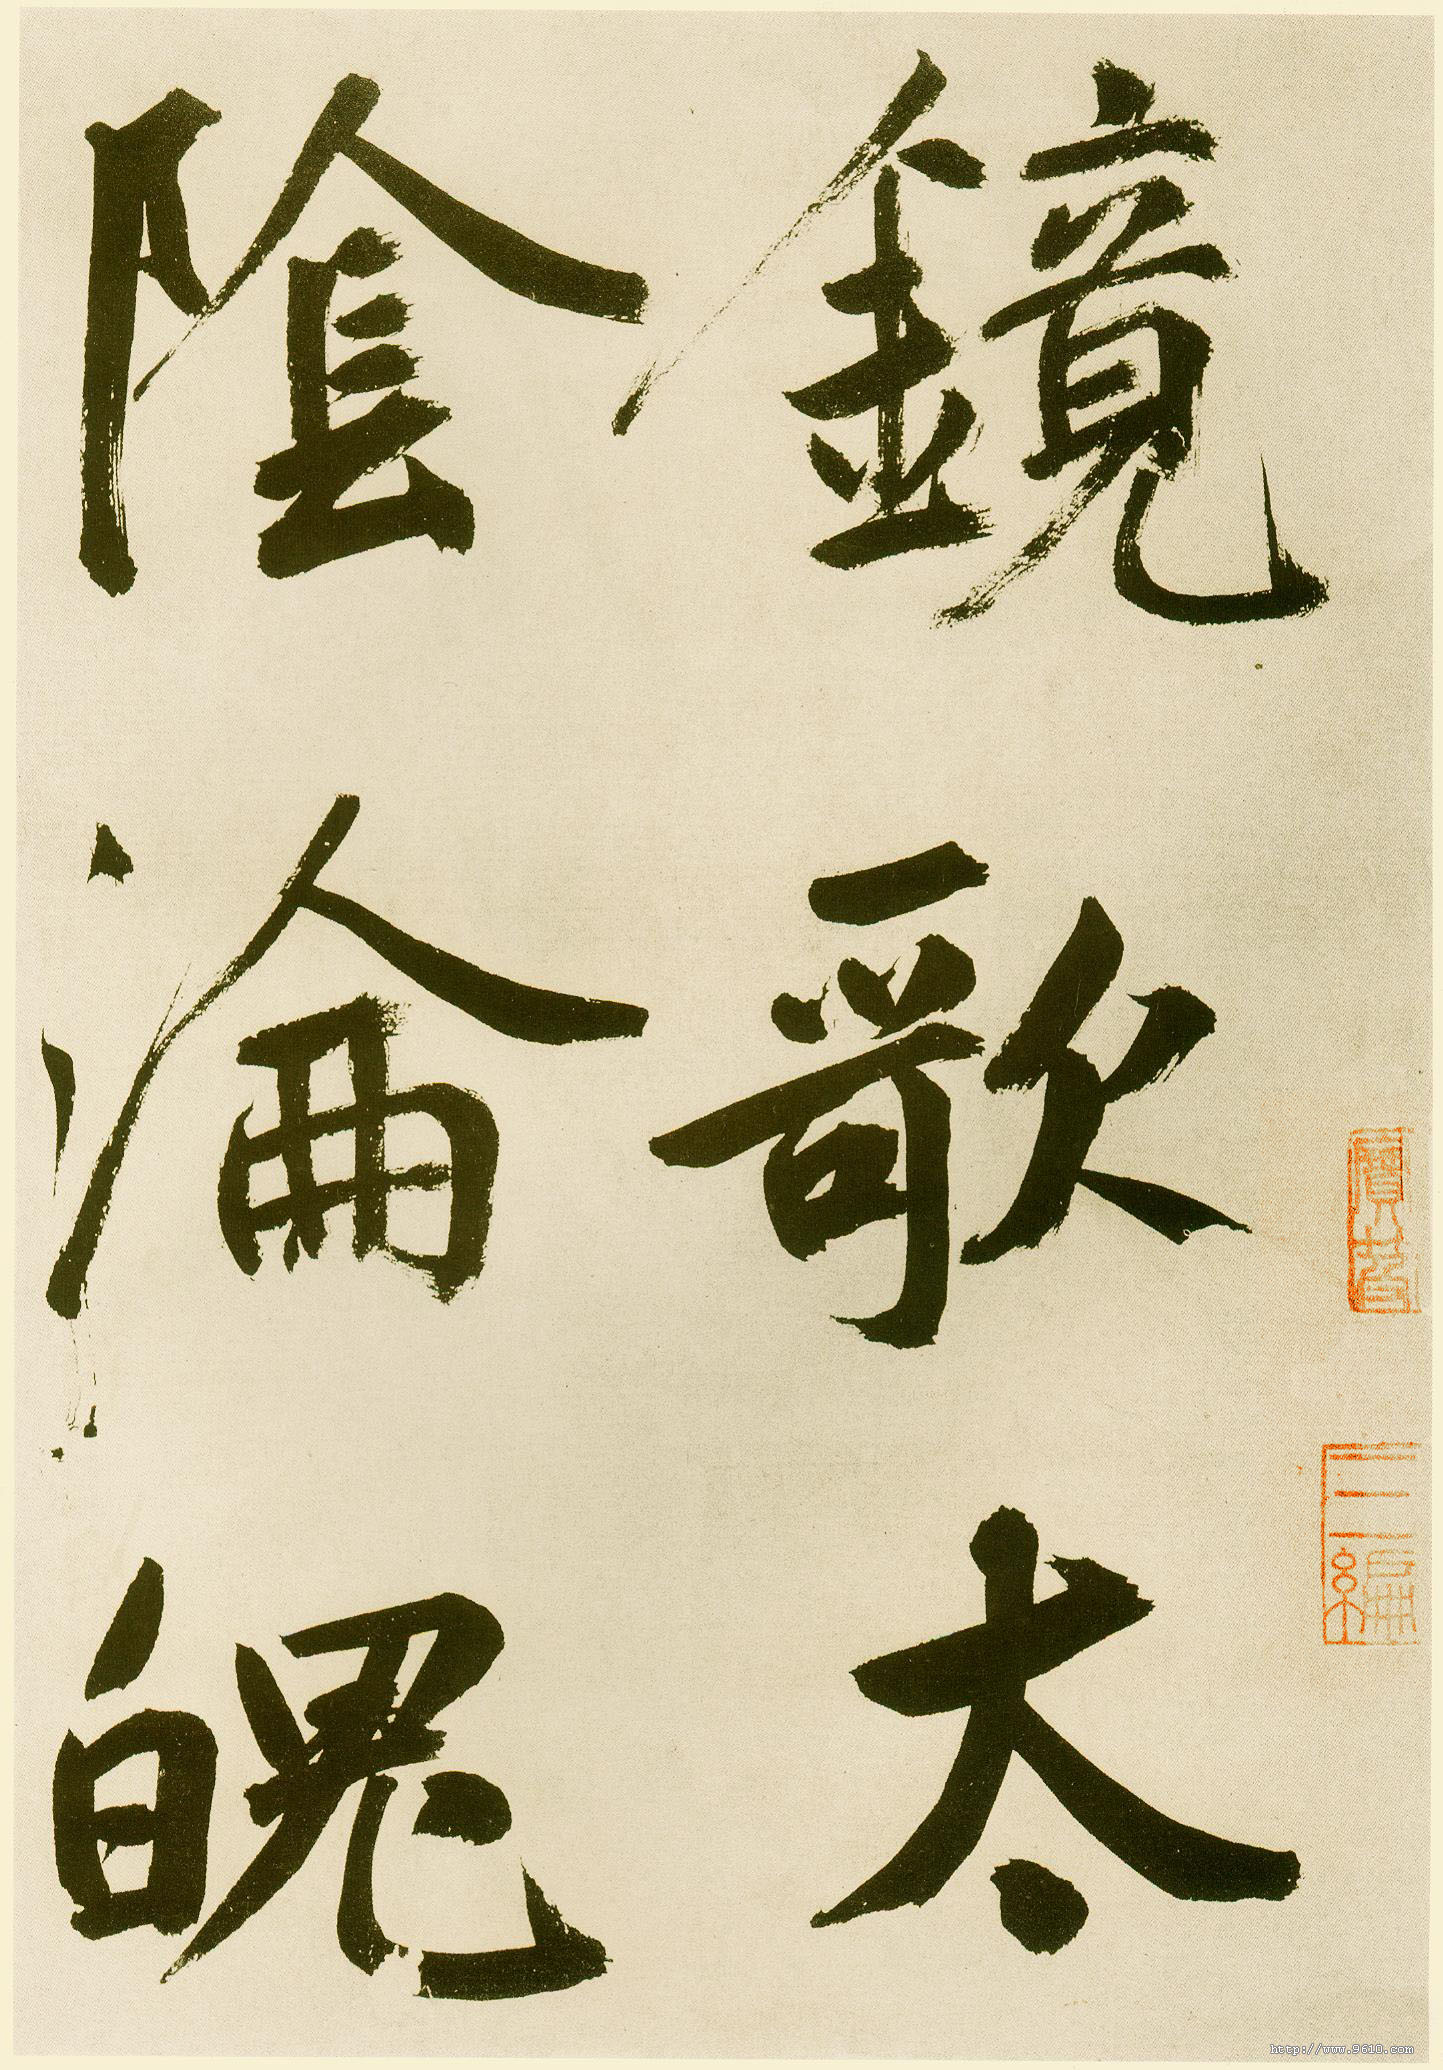 鏡歌太
陰淪魄
http://www.9610.com